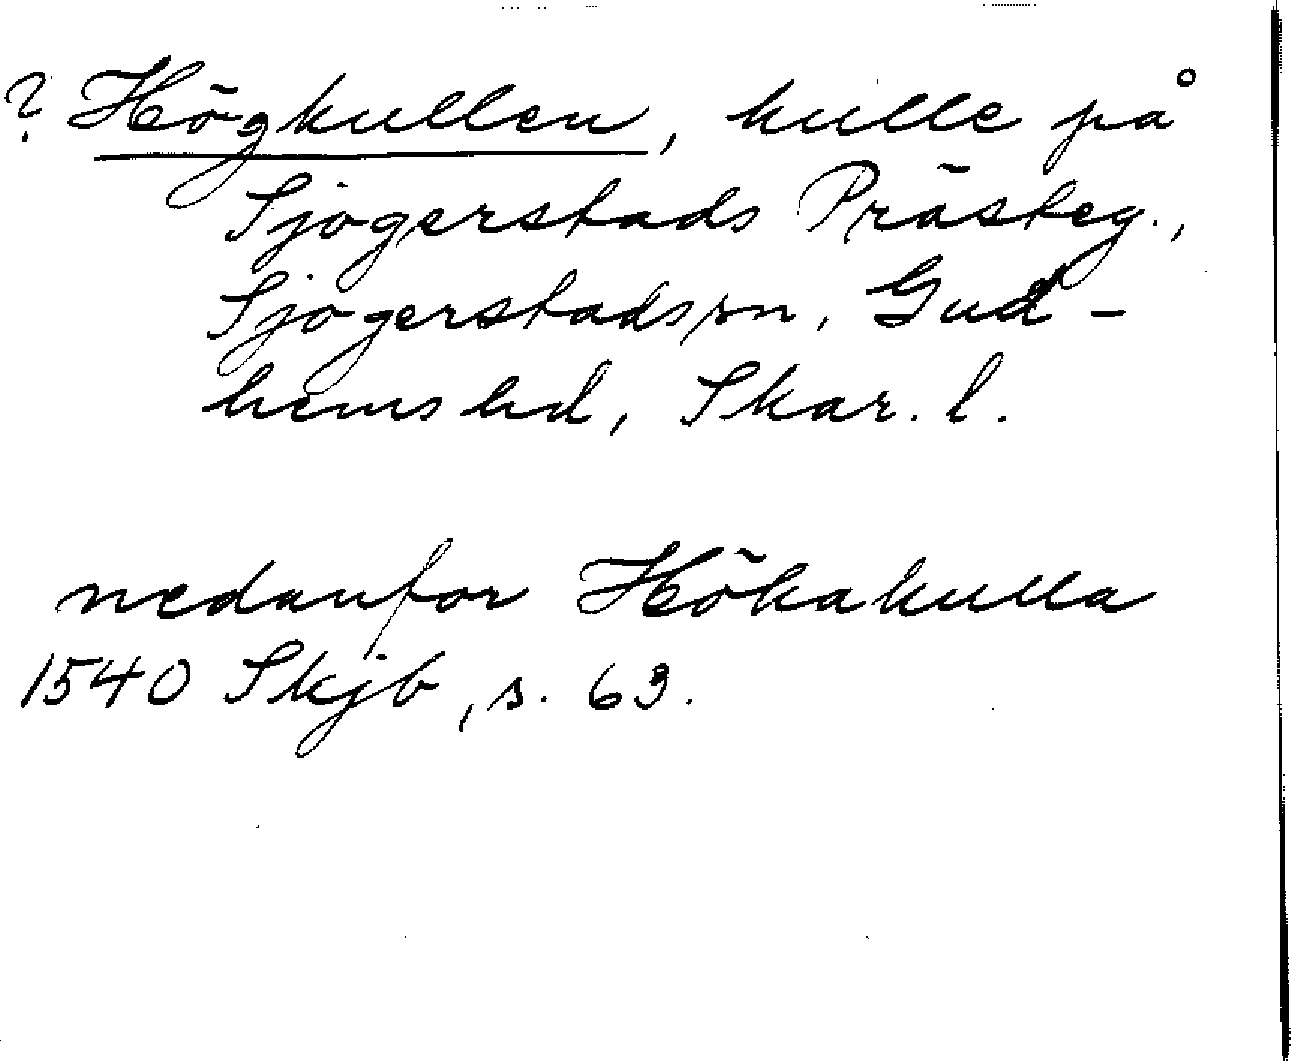 ? Högkullen, kulle på
Sjogerstads Prästeg.,
Sjogerstadssn, Gud-
hems hd, Skar. l.
nedanfor Hökakulla
1540 Skjb, s. 63.